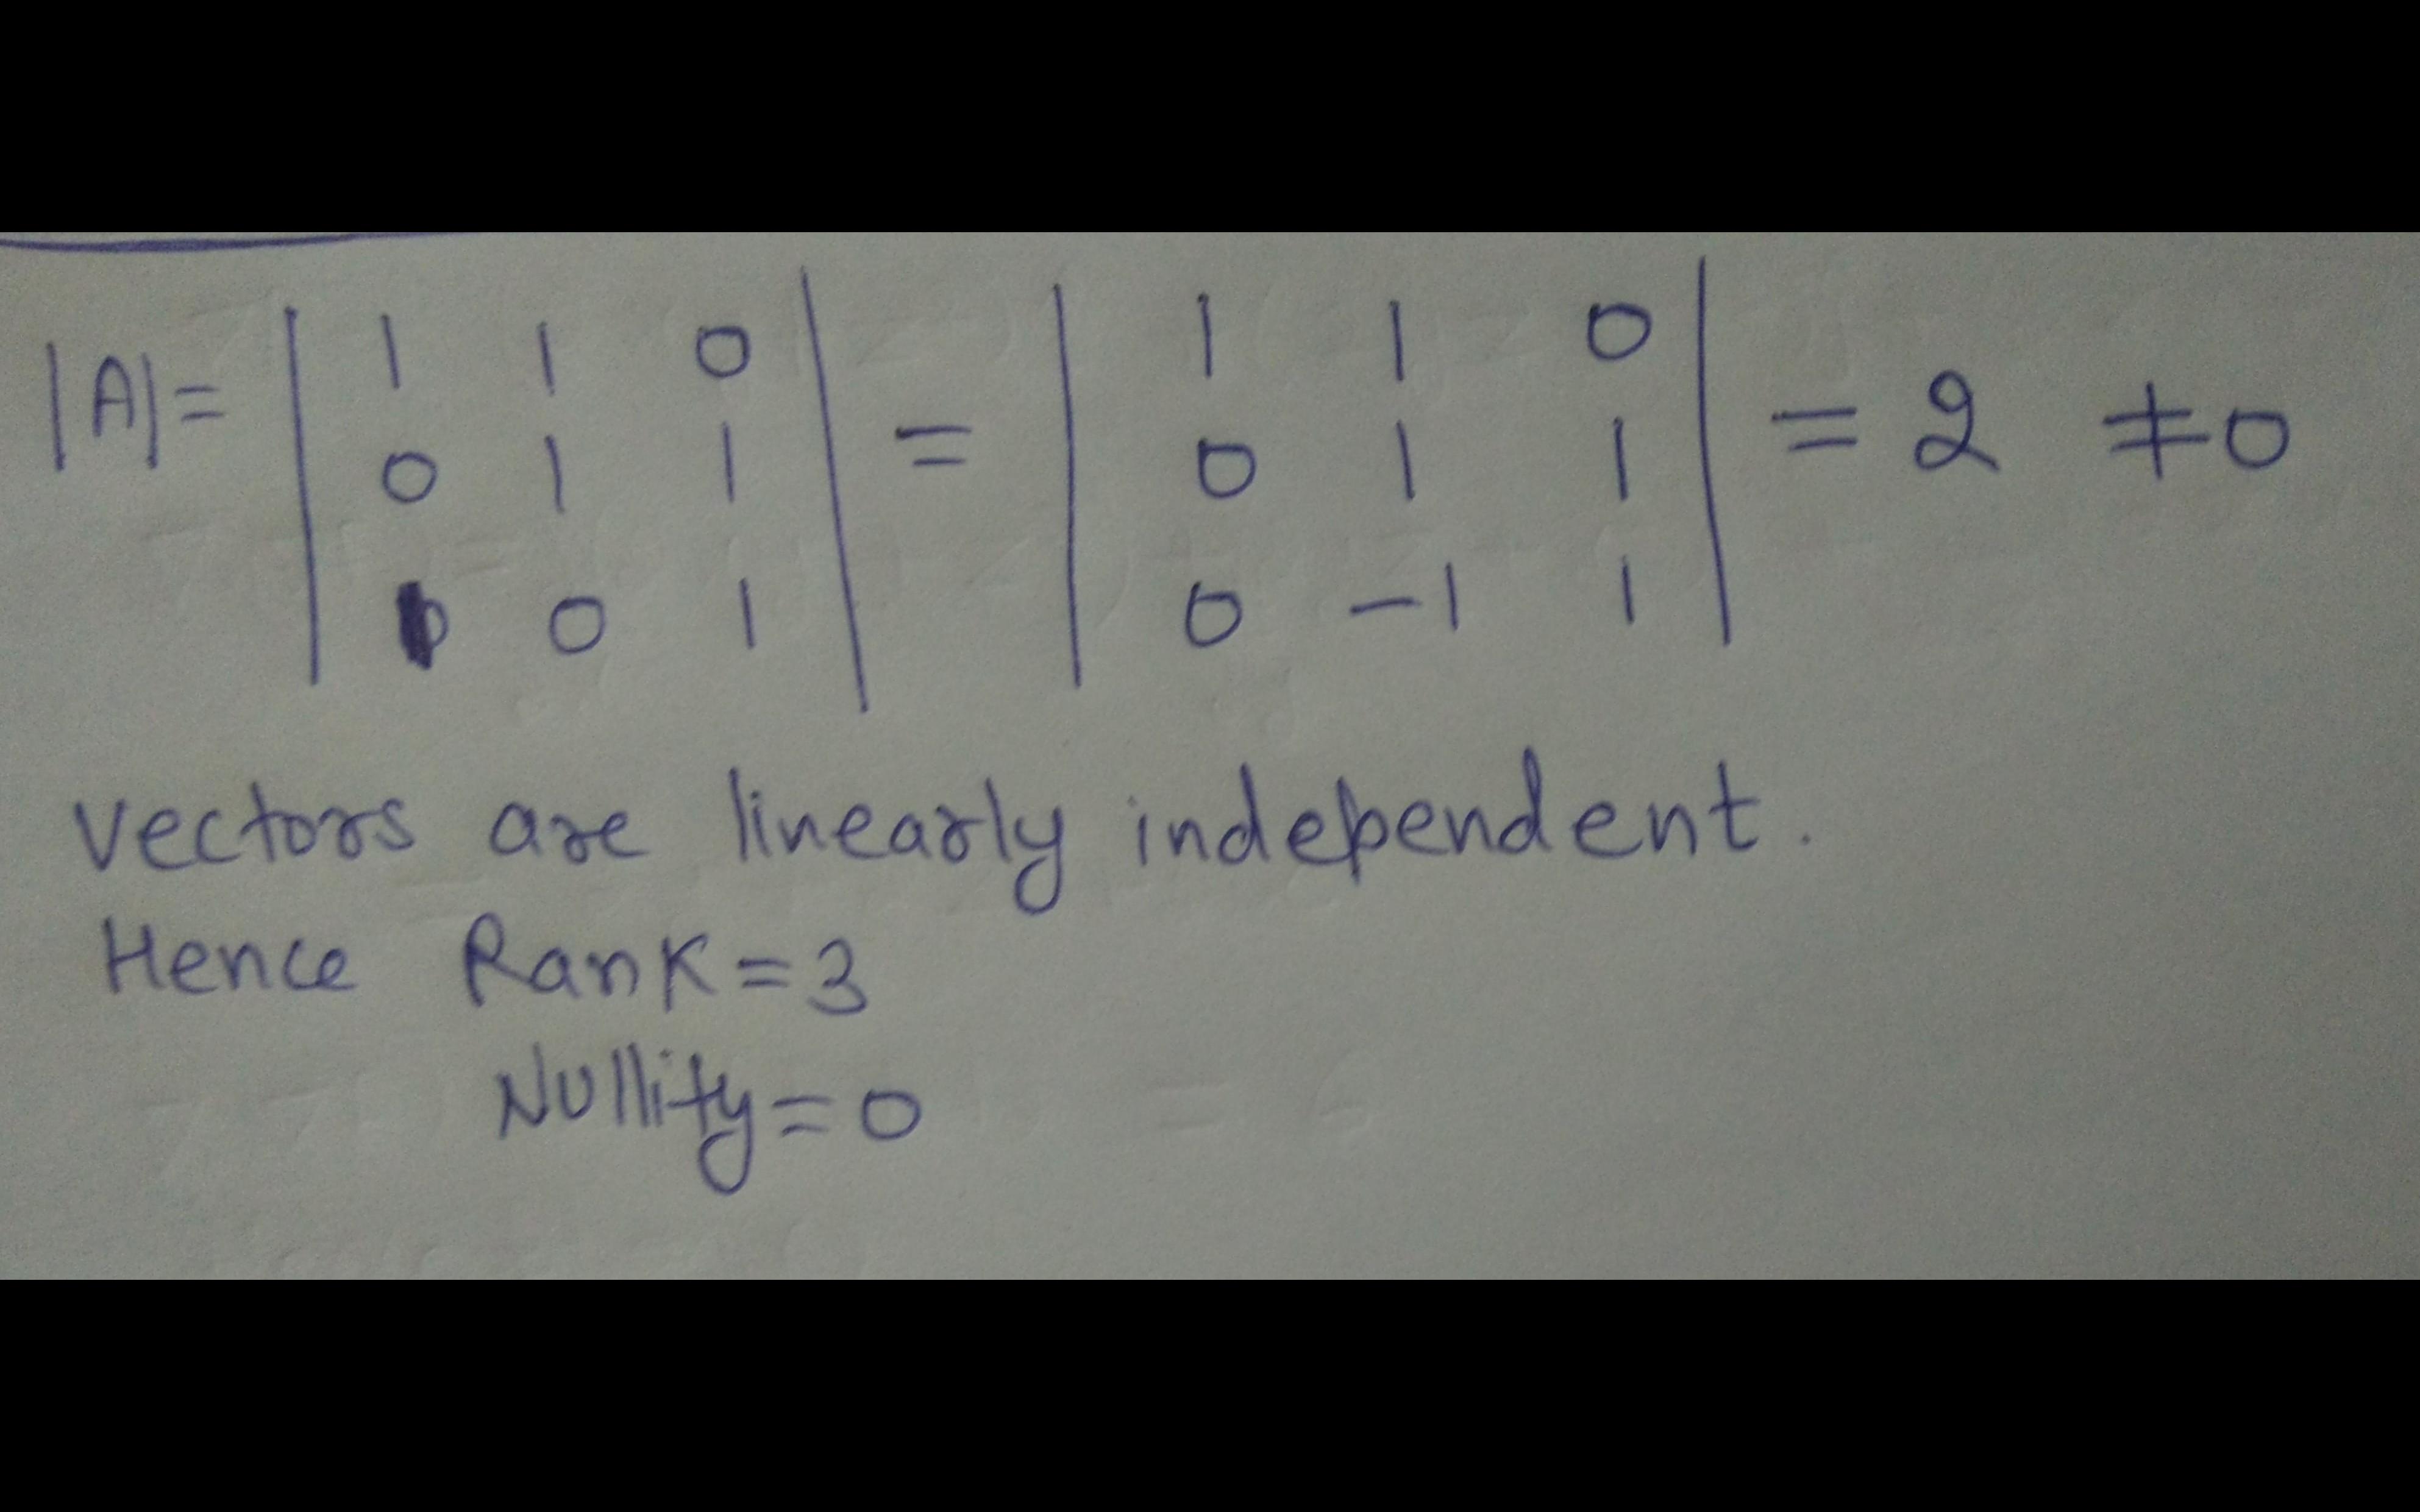 |A| = | 1 1 0 | = | 1 1 0 | = 2 ≠ 0
| 0 1 1 | | 0 1 1 |
| 1 0 1 | | 0 -1 1 |
vectors are linearly independent.
Hence Rank = 3
Nullity = 0